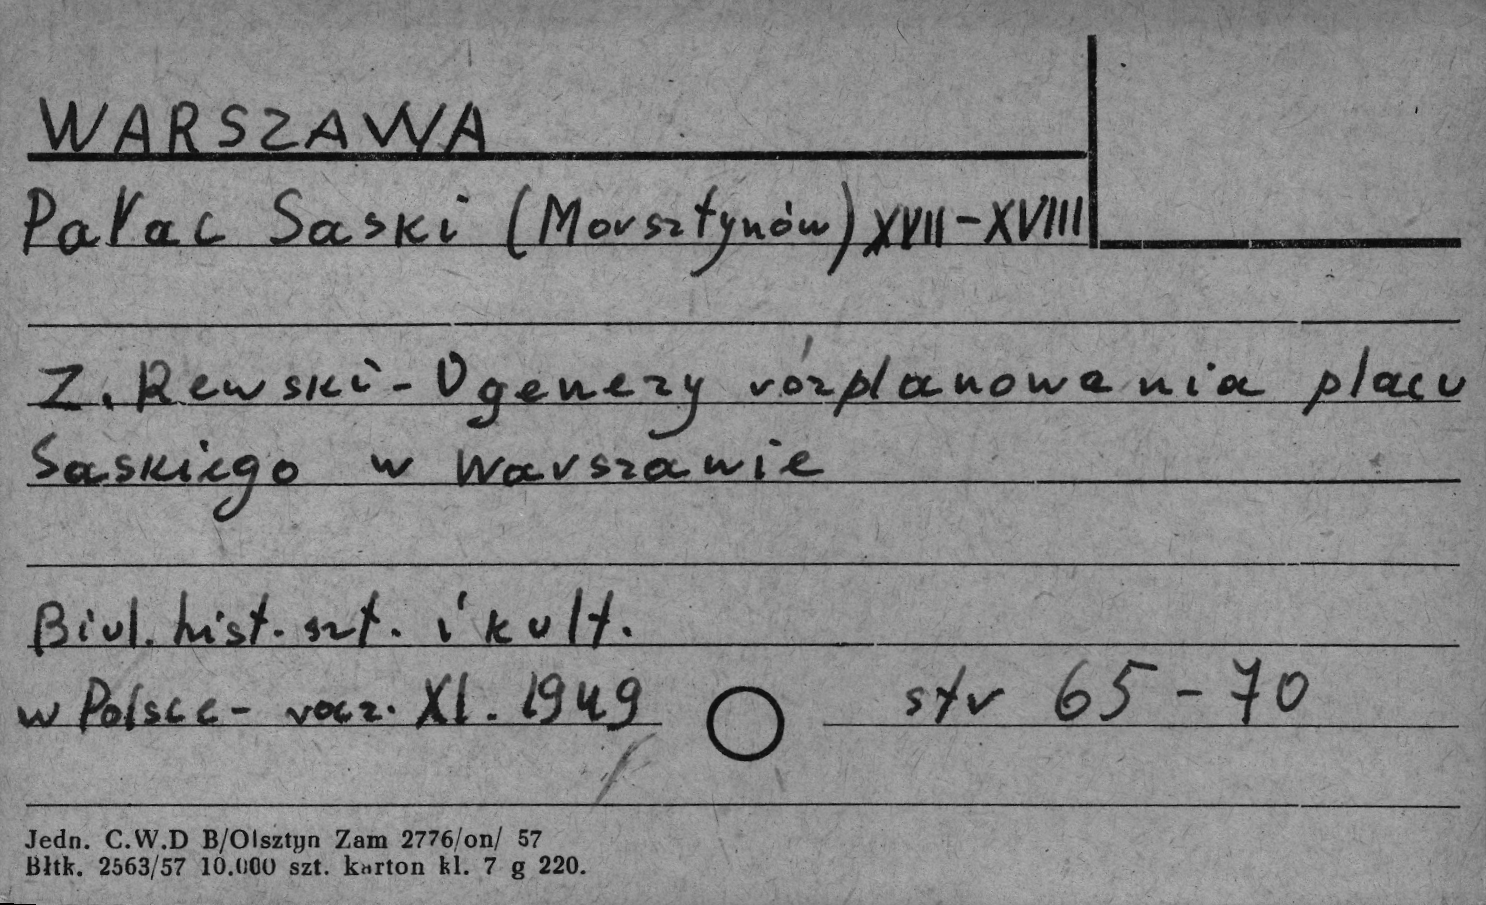 WARSZAWA
Pałac Saski (Morsztynów) XVII-XVIII
Z. Rewski - O genezy rozplanowania placu
Saskiego w Warszawie
Biul. hist. szt. i kult.
w Polsce - rocz. XI. 1949 str 65-70
Jedn. C.W.D B/Olsztyn Zam 2776/on/ 57
Błtk. 2563/57 10.000 szt. karton kl. 7 g 220.